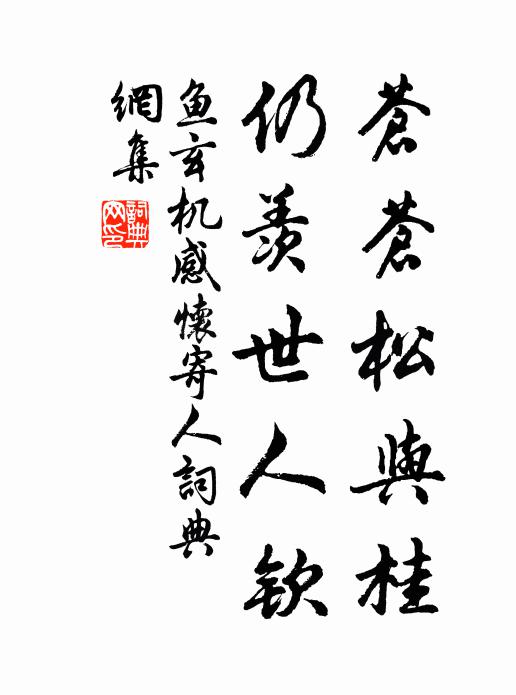 蒼蒼松與桂
仍羨世人欽
鱼玄机感懷寄人詞典
網集
詞典
网印